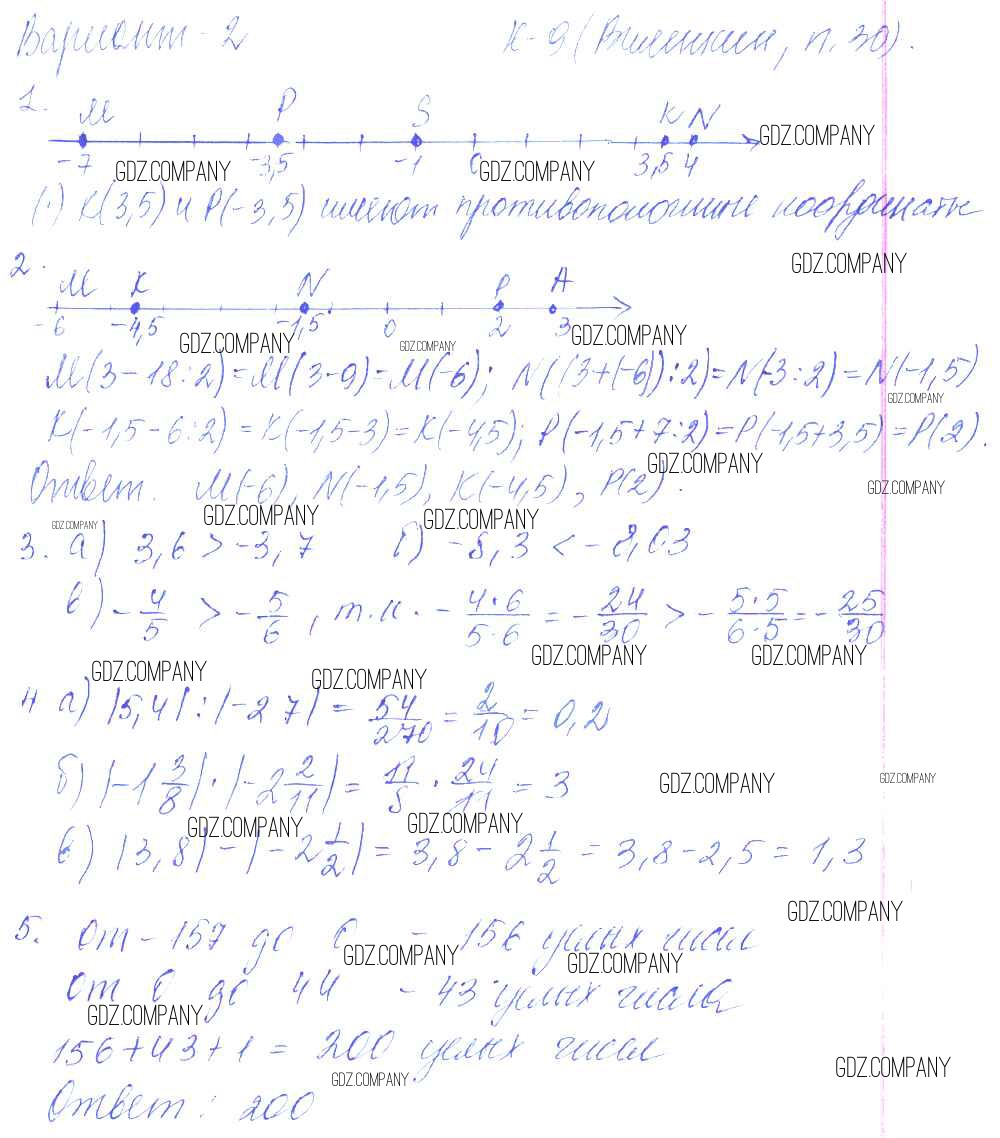 Вариант - 2 К-9 (Виленкин, п. 30).
1. M P S K N
-7 -3,5 -1 0 3,5 4
GDZ.COMPANY
GDZ.COMPANY GDZ.COMPANY
(·) K(3,5) и P(-3,5) имеют противоположные координаты
GDZ.COMPANY
2. M K N P A
-6 -4,5 -1,5 0 2 3
GDZ.COMPANY GDZ.COMPANY GDZ.COMPANY
M(3-18:2)=M(3-9)=M(-6); N((3+(-6)):2)=N(-3:2)=N(-1,5)
GDZ.COMPANY
K(-1,5-6:2)=K(-1,5-3)=K(-4,5); P(-1,5+7:2)=P(-1,5+3,5)=P(2).
GDZ.COMPANY
Ответ. M(-6), N(-1,5), K(-4,5), P(2).
GDZ.COMPANY
GDZ.COMPANY GDZ.COMPANY
GDZ.COMPANY
3. а) 3,6 > -3,7 б) -8,3 < -8,03
в) -4/5 > -5/6, т.к. -4·6/5·6 = -24/30 > -5·5/6·5 = -25/30
GDZ.COMPANY GDZ.COMPANY
GDZ.COMPANY GDZ.COMPANY
4 а) |5,4| : |-27| = 54/270 = 2/10 = 0,2
б) |-1 3/8| · |-2 2/11| = 11/8 · 24/11 = 3
GDZ.COMPANY GDZ.COMPANY
GDZ.COMPANY GDZ.COMPANY
в) |3,8| - |-2 1/2| = 3,8 - 2 1/2 = 3,8 - 2,5 = 1,3
GDZ.COMPANY
5. от -157 до 0 - 156 целых чисел
GDZ.COMPANY GDZ.COMPANY
от 0 до 44 - 43 целых числа
GDZ.COMPANY
156+43+1 = 200 целых чисел
GDZ.COMPANY GDZ.COMPANY
Ответ: 200